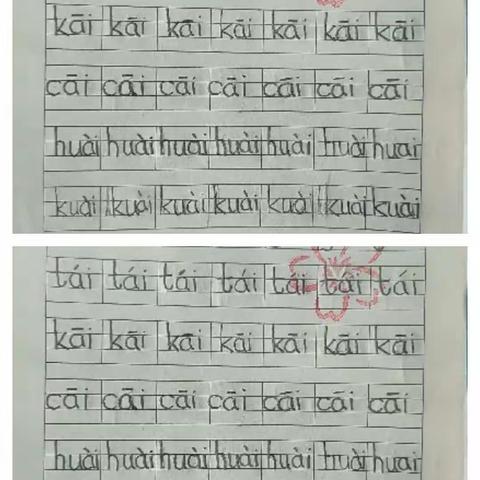 kāi kāi kāi kāi kāi kāi kāi
cāi cāi cāi cāi cāi cāi cāi
huài huài huài huài huài huài huai
kuài kuài kuài kuài kuài kuài kuài
tái tái tái tái tái tái tái
kāi kāi kāi kāi kāi kāi kāi
cāi cāi cāi cāi cāi cāi cāi
huài huài huài huài huài huài huai